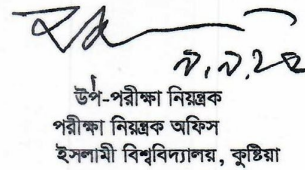 উপ-পরীক্ষা নিয়ন্ত্রক
পরীক্ষা নিয়ন্ত্রক অফিস
ইসলামী বিশ্ববিদ্যালয়, কুষ্টিয়া